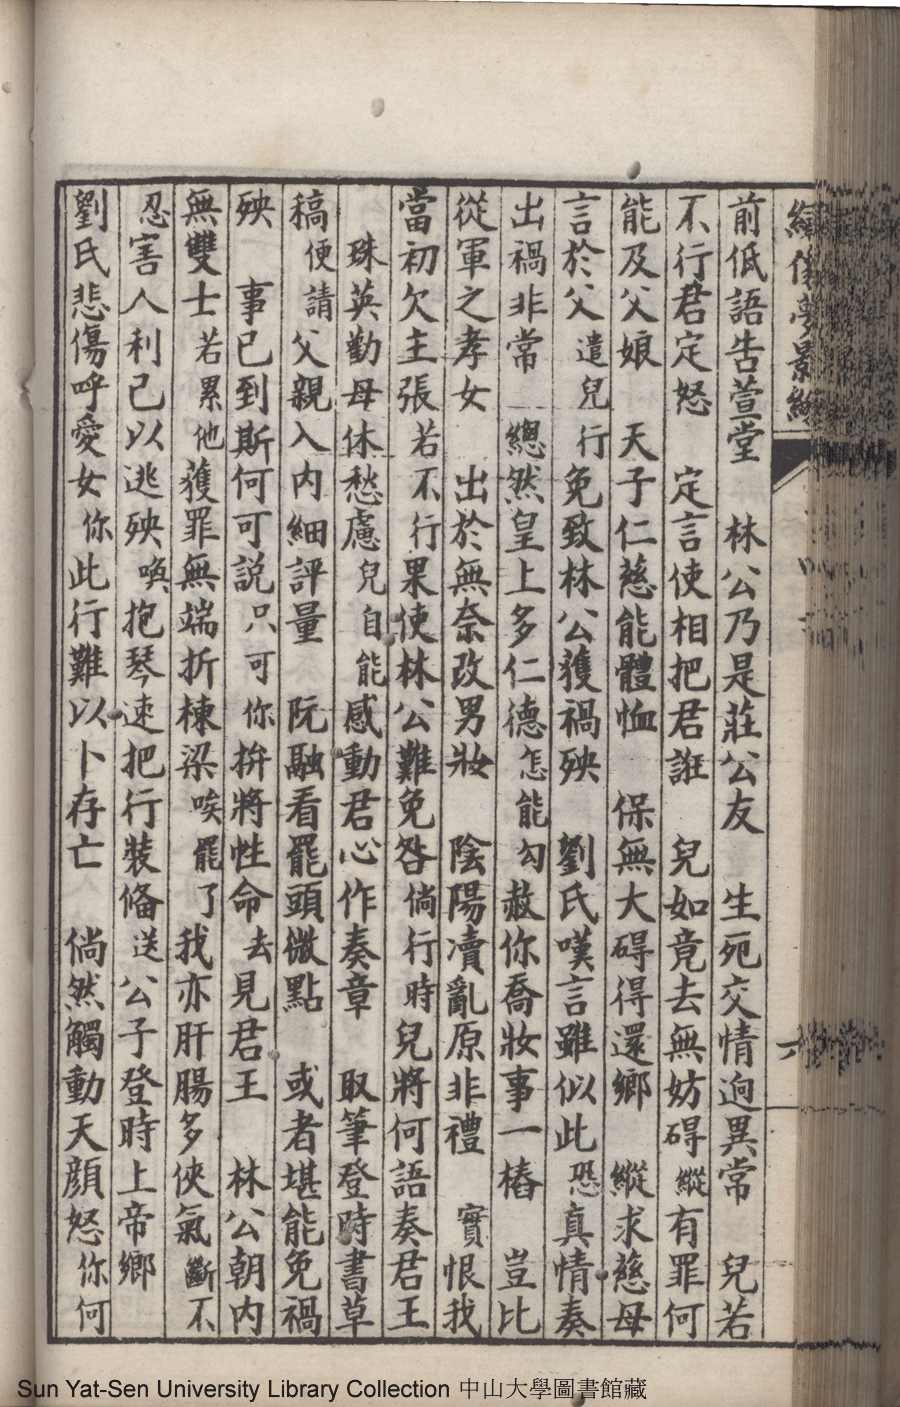 前低語告萱堂　林公乃是莊公友　生死交情迥異常　兒若
不行君定怒　定言使相把君誑　兒如竟去無妨碍縱有罪何
能及父娘　天子仁慈能體恤　保無大碍得還鄉　縱求慈母
言於父遣兒行免致林公獲禍殃　劉氏嘆言雖似此恐真情奏
出禍非常　總然皇上多仁德怎能勾赦你喬妝事一樁　豈比
從軍之孝女　出於無奈改男妝　陰陽瀆亂原非禮　實恨我
當初欠主張若不行果使林公難免咎倘行時兒將何語奏君王
珠英勸母休愁慮兒自能感動君心作奏章　取筆登時書草
稿便請父親入內細評量　阮融看罷頭微點　或者堪能免禍
殃　事已到斯何可說只可你拚將性命去見君王　林公朝內
無雙士若累他獲罪無端折棟梁唉罷了我亦肝腸多俠氣斷不
忍害人利己以逃殃喚抱琴速把行裝备送公子登時上帝鄉
劉氏悲傷呼愛女你此行難以卜存亡　倘然觸動天顔怒你何
六
Sun Yat-Sen University Library Collection 中山大學圖書館藏